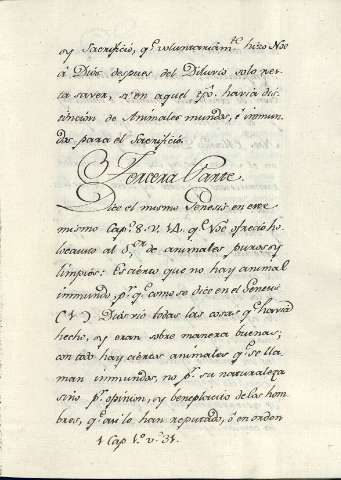 oy Sacrificio, q.e voluntariám.te hizo Noe
á Dios despues del Diluvio solo res-
ta saver, si en aquel tpo. havia dis-
tincion de Animales mundos, é inmun-
dos para el Sacrificio.
Tercera Parte.
Dice el mismo Genesis en este
mismo Cap.o 8. v. 14. q.e Noe ofreció ho-
locausto al S.or de animales puros y
limpios: Es cierto que no hay animal
inmundo, p.r q.e como se dice en el Genesis
(1.) Dios vio todas las cosas q.e havia
hecho, oy eran sobre manera buenas;
con todo hay ciertos animales q.e se lla-
man inmundos, no p.r su naturaleza
sino p.r opinion, oy beneplacio de los hom-
bres, q.e asi lo han reputado, ó en orden
1 Cap 1.o v.o 31.